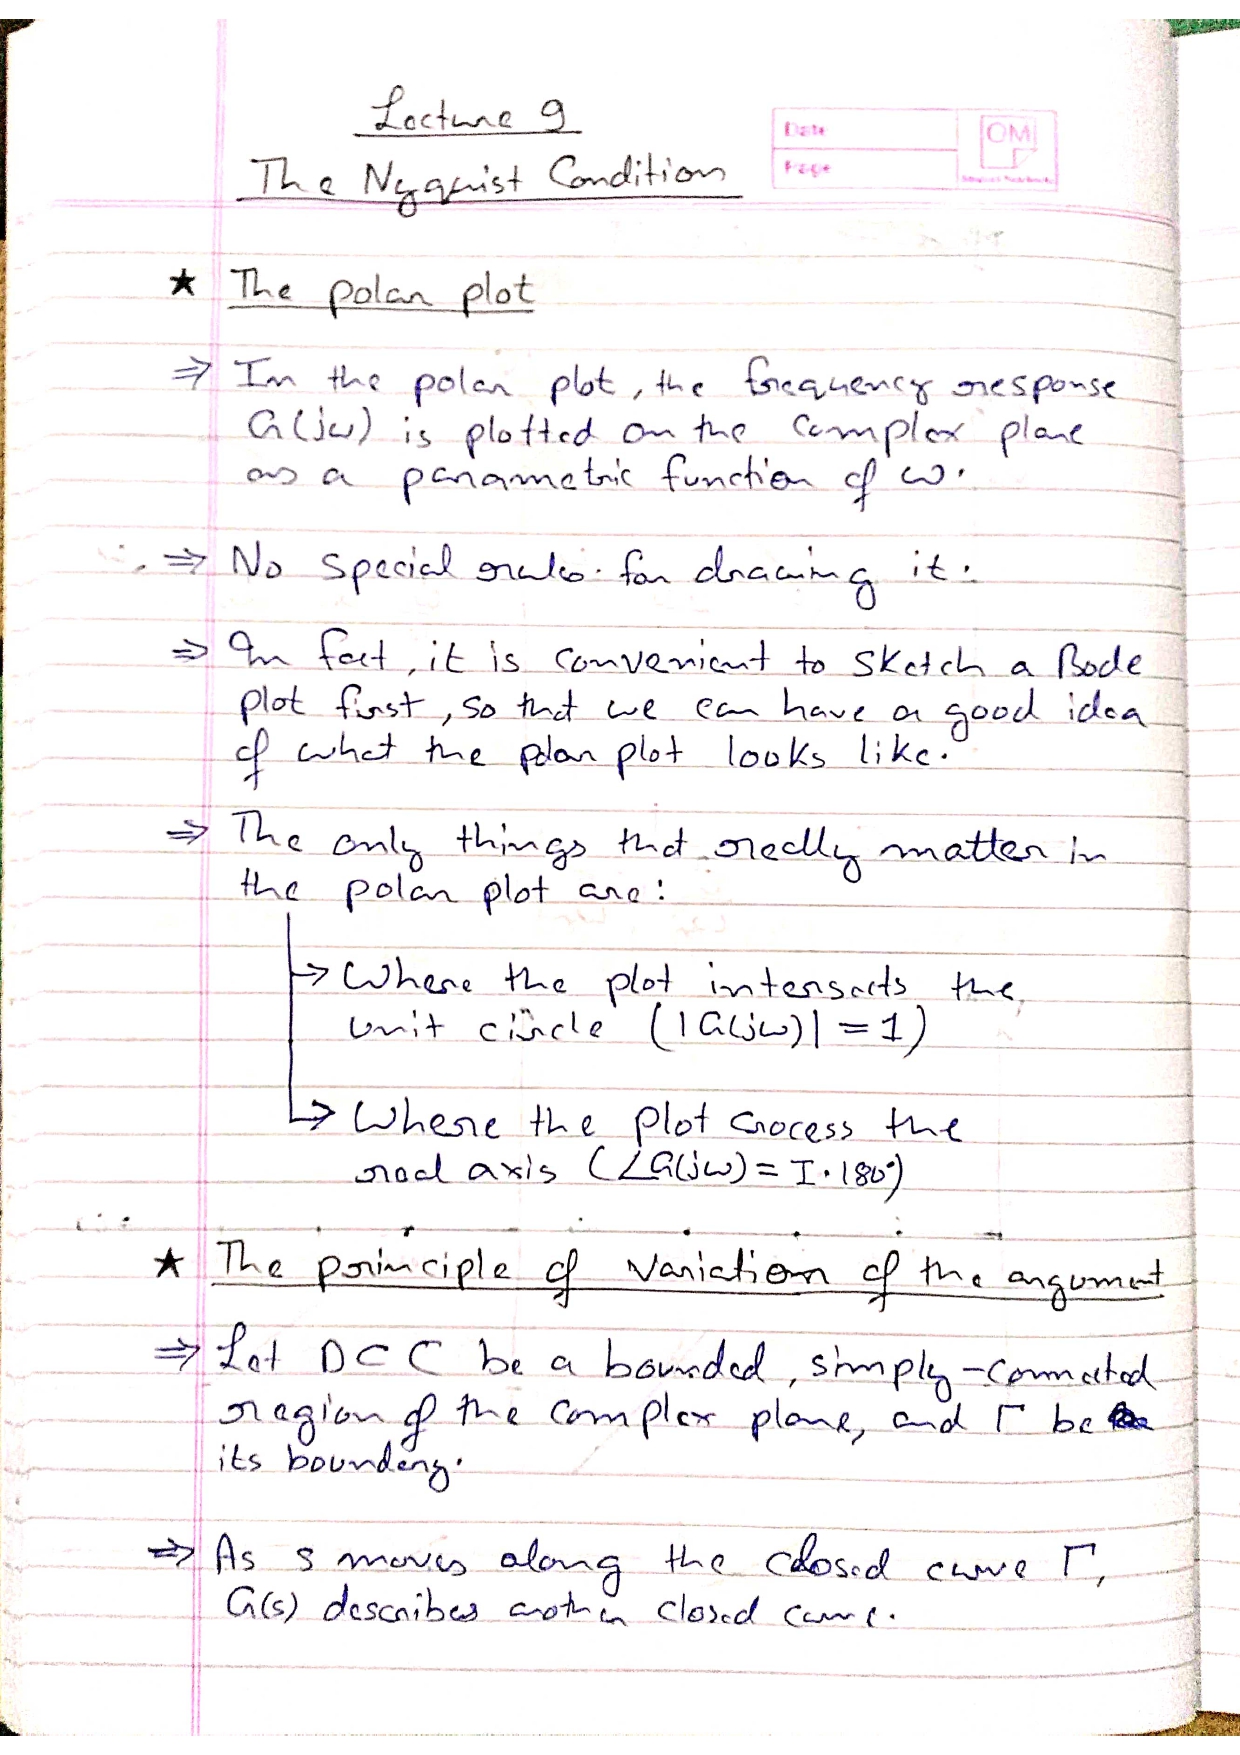 Lecture 9
The Nyquist Condition
Date
Page
OM
★ The polar plot
⇒ In the polar plot, the frequency response
G(jω) is plotted on the complex plane
as a parametric function of ω.
⇒ No special rules for drawing it.
⇒ In fact, it is convenient to sketch a Bode
plot first, so that we can have a good idea
of what the polar plot looks like.
⇒ The only things that really matter in
the polar plot are:
→ Where the plot intersects the
unit circle (|G(jω)| = 1)
→ Where the plot crocess the
real axis (∠G(jω) = I·180°)
★ The principle of variation of the argument
⇒ Let D ⊂ C be a bounded, simply-connected
region of the complex plane, and Γ be
its boundary.
⇒ As s moves along the closed curve Γ,
G(s) describes another closed curve.